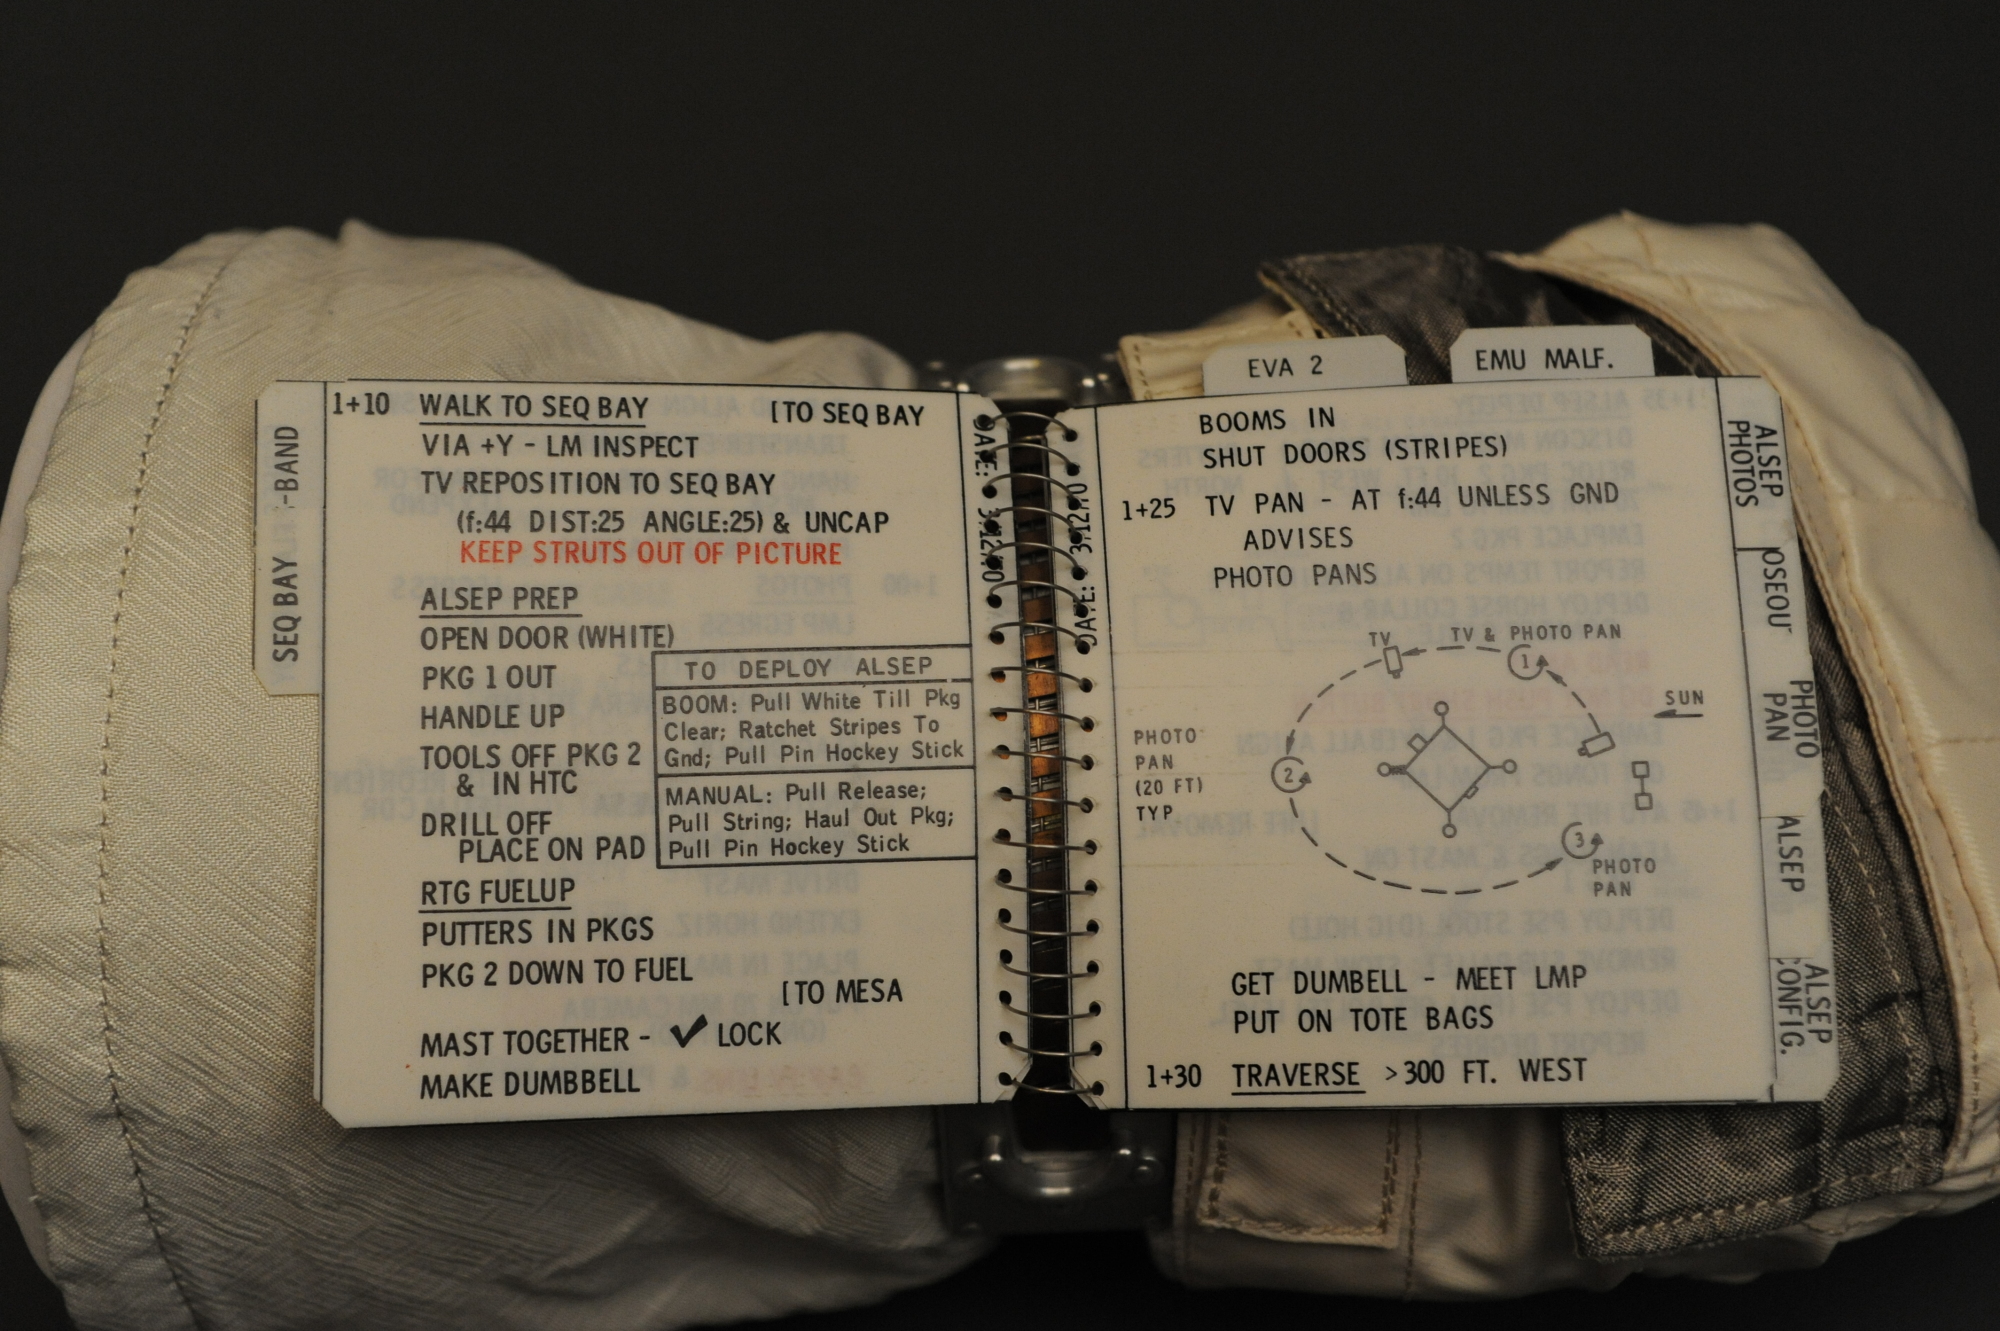 SEQ BAY
-BAND
1+10 WALK TO SEQ BAY [TO SEQ BAY
VIA +Y - LM INSPECT
TV REPOSITION TO SEQ BAY
(f:44 DIST:25 ANGLE:25) & UNCAP
KEEP STRUTS OUT OF PICTURE
ALSEP PREP
OPEN DOOR (WHITE)
PKG 1 OUT
HANDLE UP
TOOLS OFF PKG 2
& IN HTC
DRILL OFF
PLACE ON PAD
TO DEPLOY ALSEP
BOOM: Pull White Till Pkg
Clear; Ratchet Stripes To
Gnd; Pull Pin Hockey Stick
MANUAL: Pull Release;
Pull String; Haul Out Pkg;
Pull Pin Hockey Stick
RTG FUELUP
PUTTERS IN PKGS
PKG 2 DOWN TO FUEL
[TO MESA
MAST TOGETHER - ✓ LOCK
MAKE DUMBBELL
EVA 2
EMU MALF.
BOOMS IN
SHUT DOORS (STRIPES)
1+25 TV PAN - AT f:44 UNLESS GND
ADVISES
PHOTO PANS
TV
TV & PHOTO PAN
1
SUN
PHOTO
PAN
(20 FT)
TYP
2
3
PHOTO
PAN
GET DUMBELL - MEET LMP
PUT ON TOTE BAGS
1+30 TRAVERSE >300 FT. WEST
ALSEP
PHOTOS
PHOTO
PAN
ALSEP
ALSEP
CONFIG.